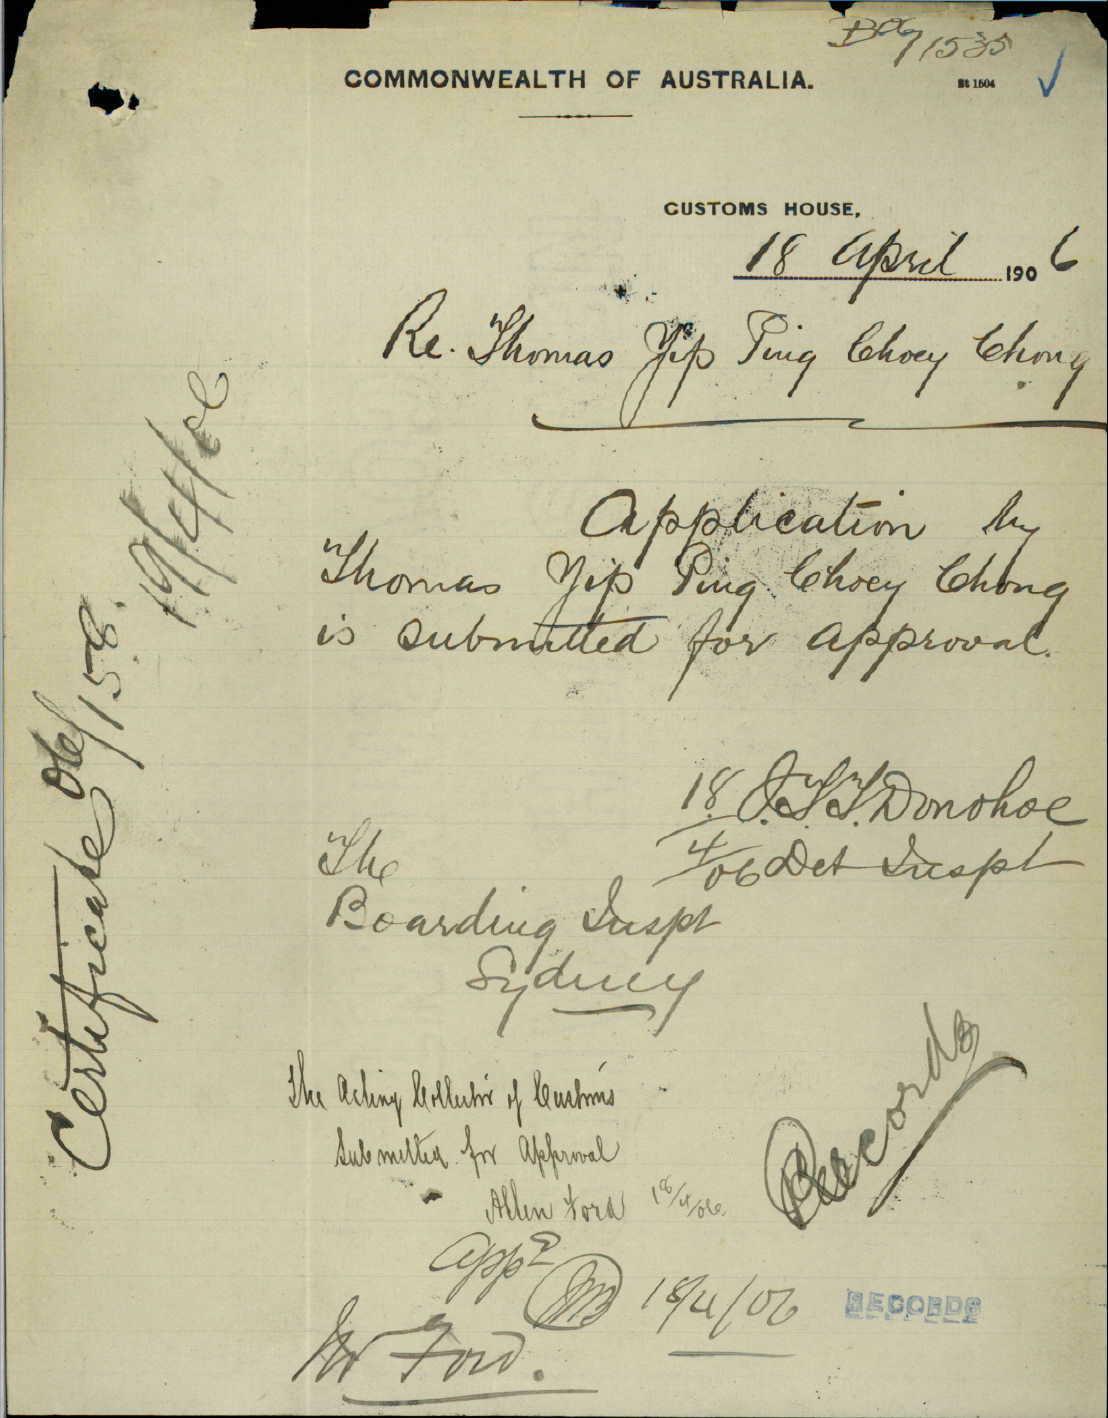 B06/1535
COMMONWEALTH OF AUSTRALIA.
St 1504
CUSTOMS HOUSE,
18 April 1906
Re. Thomas Yip Ping Choey Chong
Application by
Thomas Yip Ping Choey Chong
is submitted for approval.
18/4/06 J.T.T. Donohoe
Det Inspt
The
Boarding Inspt
Sydney
The Acting Collector of Customs
Submitted for Approval
Allen Ford 18/4/06
Appd
18/4/06
Mr Ford.
Records
RECORDS
Certificate 06/158.
19/4/06